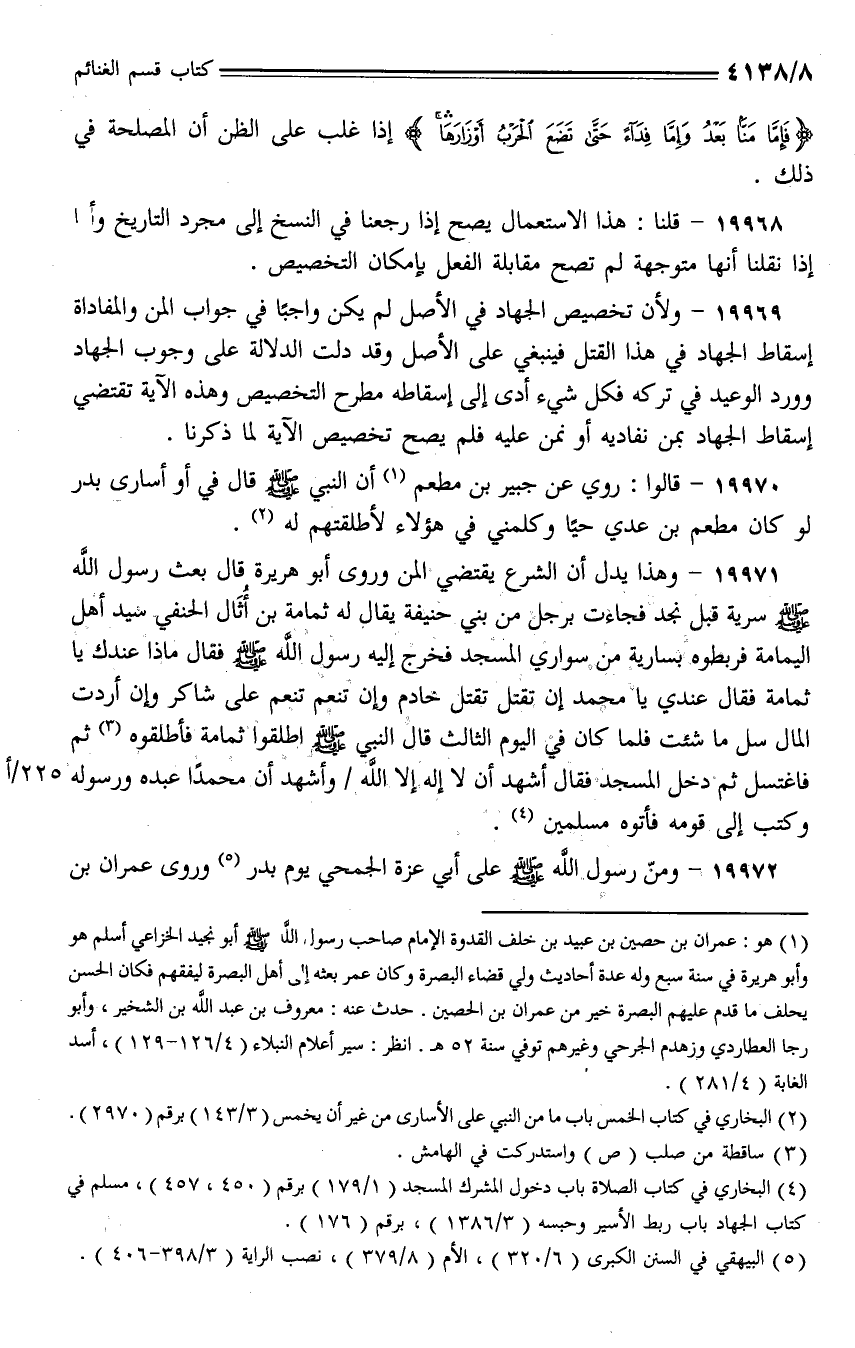 ٤١٣٨/٨ كتاب قسم الغنائم
﴿ فَإِمَّا مَنًّا بَعْدُ وَإِمَّا فِدَاءً حَتَّىٰ تَضَعَ الْحَرْبُ أَوْزَارَهَا ﴾ إذا غلب على الظن أن المصلحة في
ذلك .
١٩٩٦٨ - قلنا : هذا الاستعمال يصح إذا رجعنا في النسخ إلى مجرد التاريخ وأ ا
إذا نقلنا أنها متوجهة لم تصح مقابلة الفعل بإمكان التخصيص .
١٩٩٦٩ - ولأن تخصيص الجهاد في الأصل لم يكن واجبًا في جواب المن والمفاداة
إسقاط الجهاد في هذا القتل فينبغي على الأصل وقد دلت الدلالة على وجوب الجهاد
وورد الوعيد في تركه فكل شيء أدى إلى إسقاطه مطرح التخصيص وهذه الآية تقتضي
إسقاط الجهاد بمن نفاديه أو نمن عليه فلم يصح تخصيص الآية لما ذكرنا .
١٩٩٧٠ - قالوا : روي عن جبير بن مطعم (١) أن النبي ﷺ قال في أو أسارى بدر
لو كان مطعم بن عدي حيًا وكلمني في هؤلاء لأطلقتهم له (٢) .
١٩٩٧١ - وهذا يدل أن الشرع يقتضي المن وروى أبو هريرة قال بعث رسول اللَّه
ﷺ سرية قبل نجد فجاءت برجل من بني حنيفة يقال له ثمامة بن أُثَال الحنفي سيد أهل
اليمامة فربطوه بسارية من سواري المسجد فخرج إليه رسول اللَّه ﷺ فقال ماذا عندك يا
ثمامة فقال عندي يا محمد إن تقتل تقتل خادم وإن تنعم تنعم على شاكر وإن أردت
المال سل ما شئت فلما كان في اليوم الثالث قال النبي ﷺ اطلقوا ثمامة فأطلقوه (٣) ثم
فاغتسل ثم دخل المسجد فقال أشهد أن لا إله إلا اللَّه / وأشهد أن محمدًا عبده ورسوله ٢٢٥/أ
وكتب إلى قومه فأتوه مسلمين (٤) .
١٩٩٧٢ - ومنّ رسول اللَّه ﷺ على أبي عزة الجمحي يوم بدر (٥) وروى عمران بن
(١) هو : عمران بن حصين بن عبيد بن خلف القدوة الإمام صاحب رسول اللَّه ﷺ أبو نجيد الخزاعي أسلم هو
وأبو هريرة في سنة سبع وله عدة أحاديث ولي قضاء البصرة وكان عمر بعثه إلى أهل البصرة ليفقهم فكان الحسن
يحلف ما قدم عليهم البصرة خير من عمران بن الحصين . حدث عنه : معروف بن عبد اللَّه بن الشخير ، وأبو
رجا العطاردي وزهدم الجرحي وغيرهم توفي سنة ٥٢ هـ . انظر : سير أعلام النبلاء ( ١٢٦/٤-١٢٩ ) ، أسد
الغابة ( ٢٨١/٤ ) .
(٢) البخاري في كتاب الخمس باب ما من النبي على الأسارى من غير أن يخمس ( ١٤٣/٣ ) برقم ( ٢٩٧٠ ) .
(٣) ساقطة من صلب ( ص ) واستدركت في الهامش .
(٤) البخاري في كتاب الصلاة باب دخول المشرك المسجد ( ١٧٩/١ ) برقم ( ٤٥٠ ، ٤٥٧ ) ، مسلم في
كتاب الجهاد باب ربط الأسير وحبسه ( ١٣٨٦/٣ ) ، برقم ( ١٧٦ ) .
(٥) البيهقي في السنن الكبرى ( ٣٢٠/٦ ) ، الأم ( ٣٧٩/٨ ) ، نصب الراية ( ٣٩٨/٣-٤٠٦ ) .